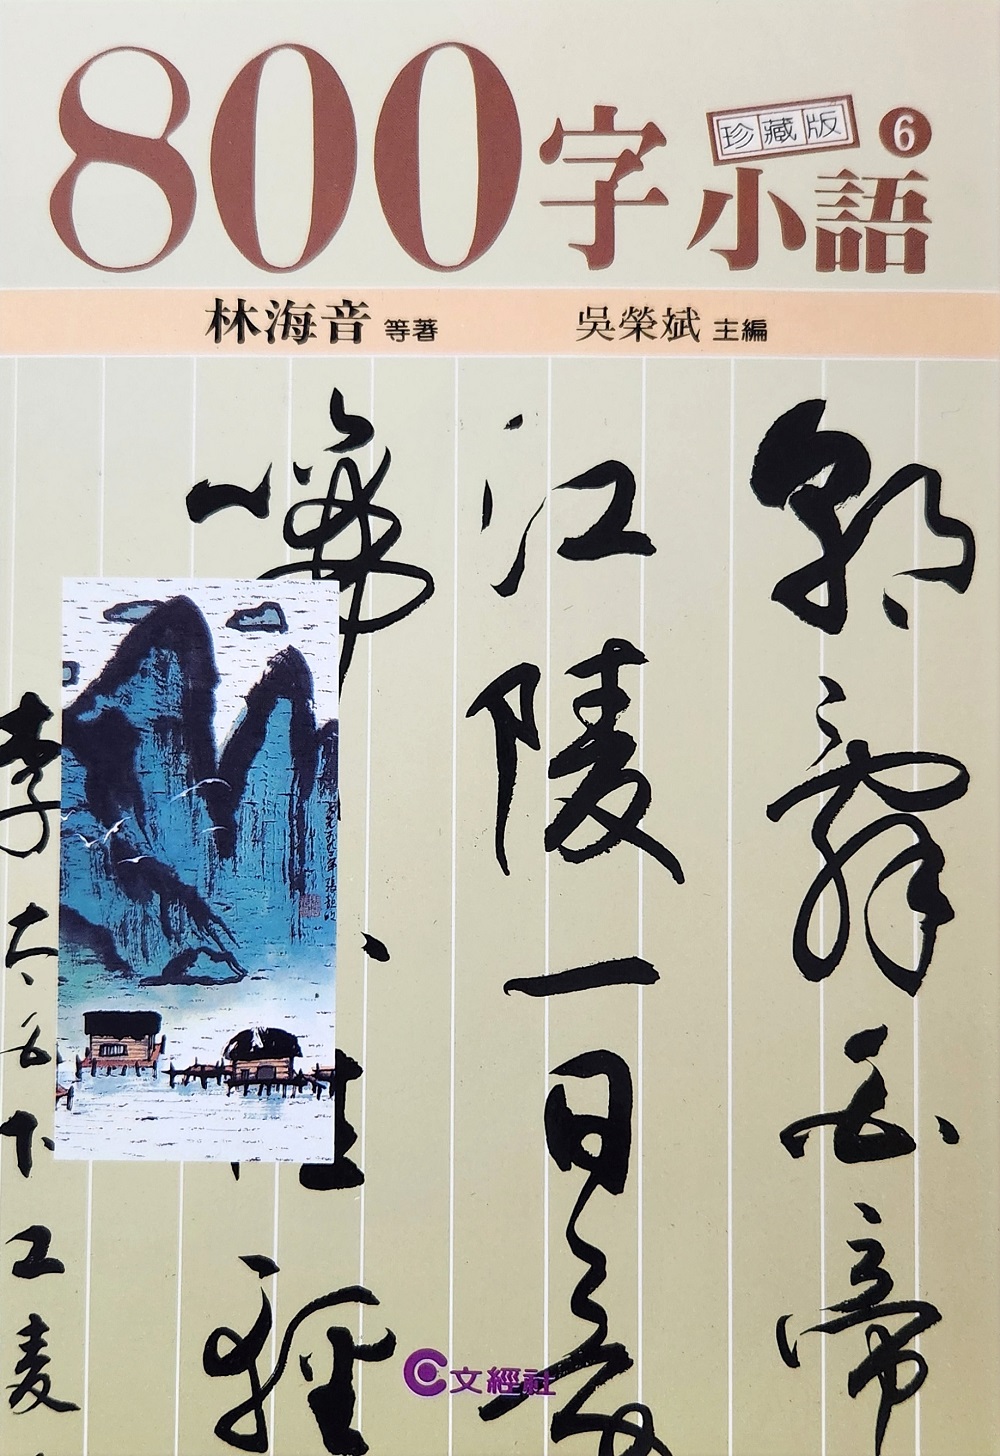 800字小語
珍藏版
6
林海音 等著
吳榮斌 主編
朝辭白帝
江陵一日還
啼住輕
李太白下江陵
文經社